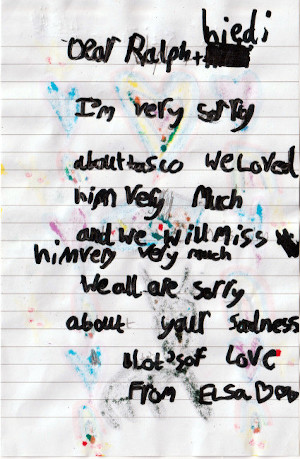 Dear Ralph + hiedi
I'm very sorry
about tasco we Loved
him very Much
and we will Miss
him very very much
We all are sorry
about your Sadness
Lots of Love
From ELSa ♡♡♡